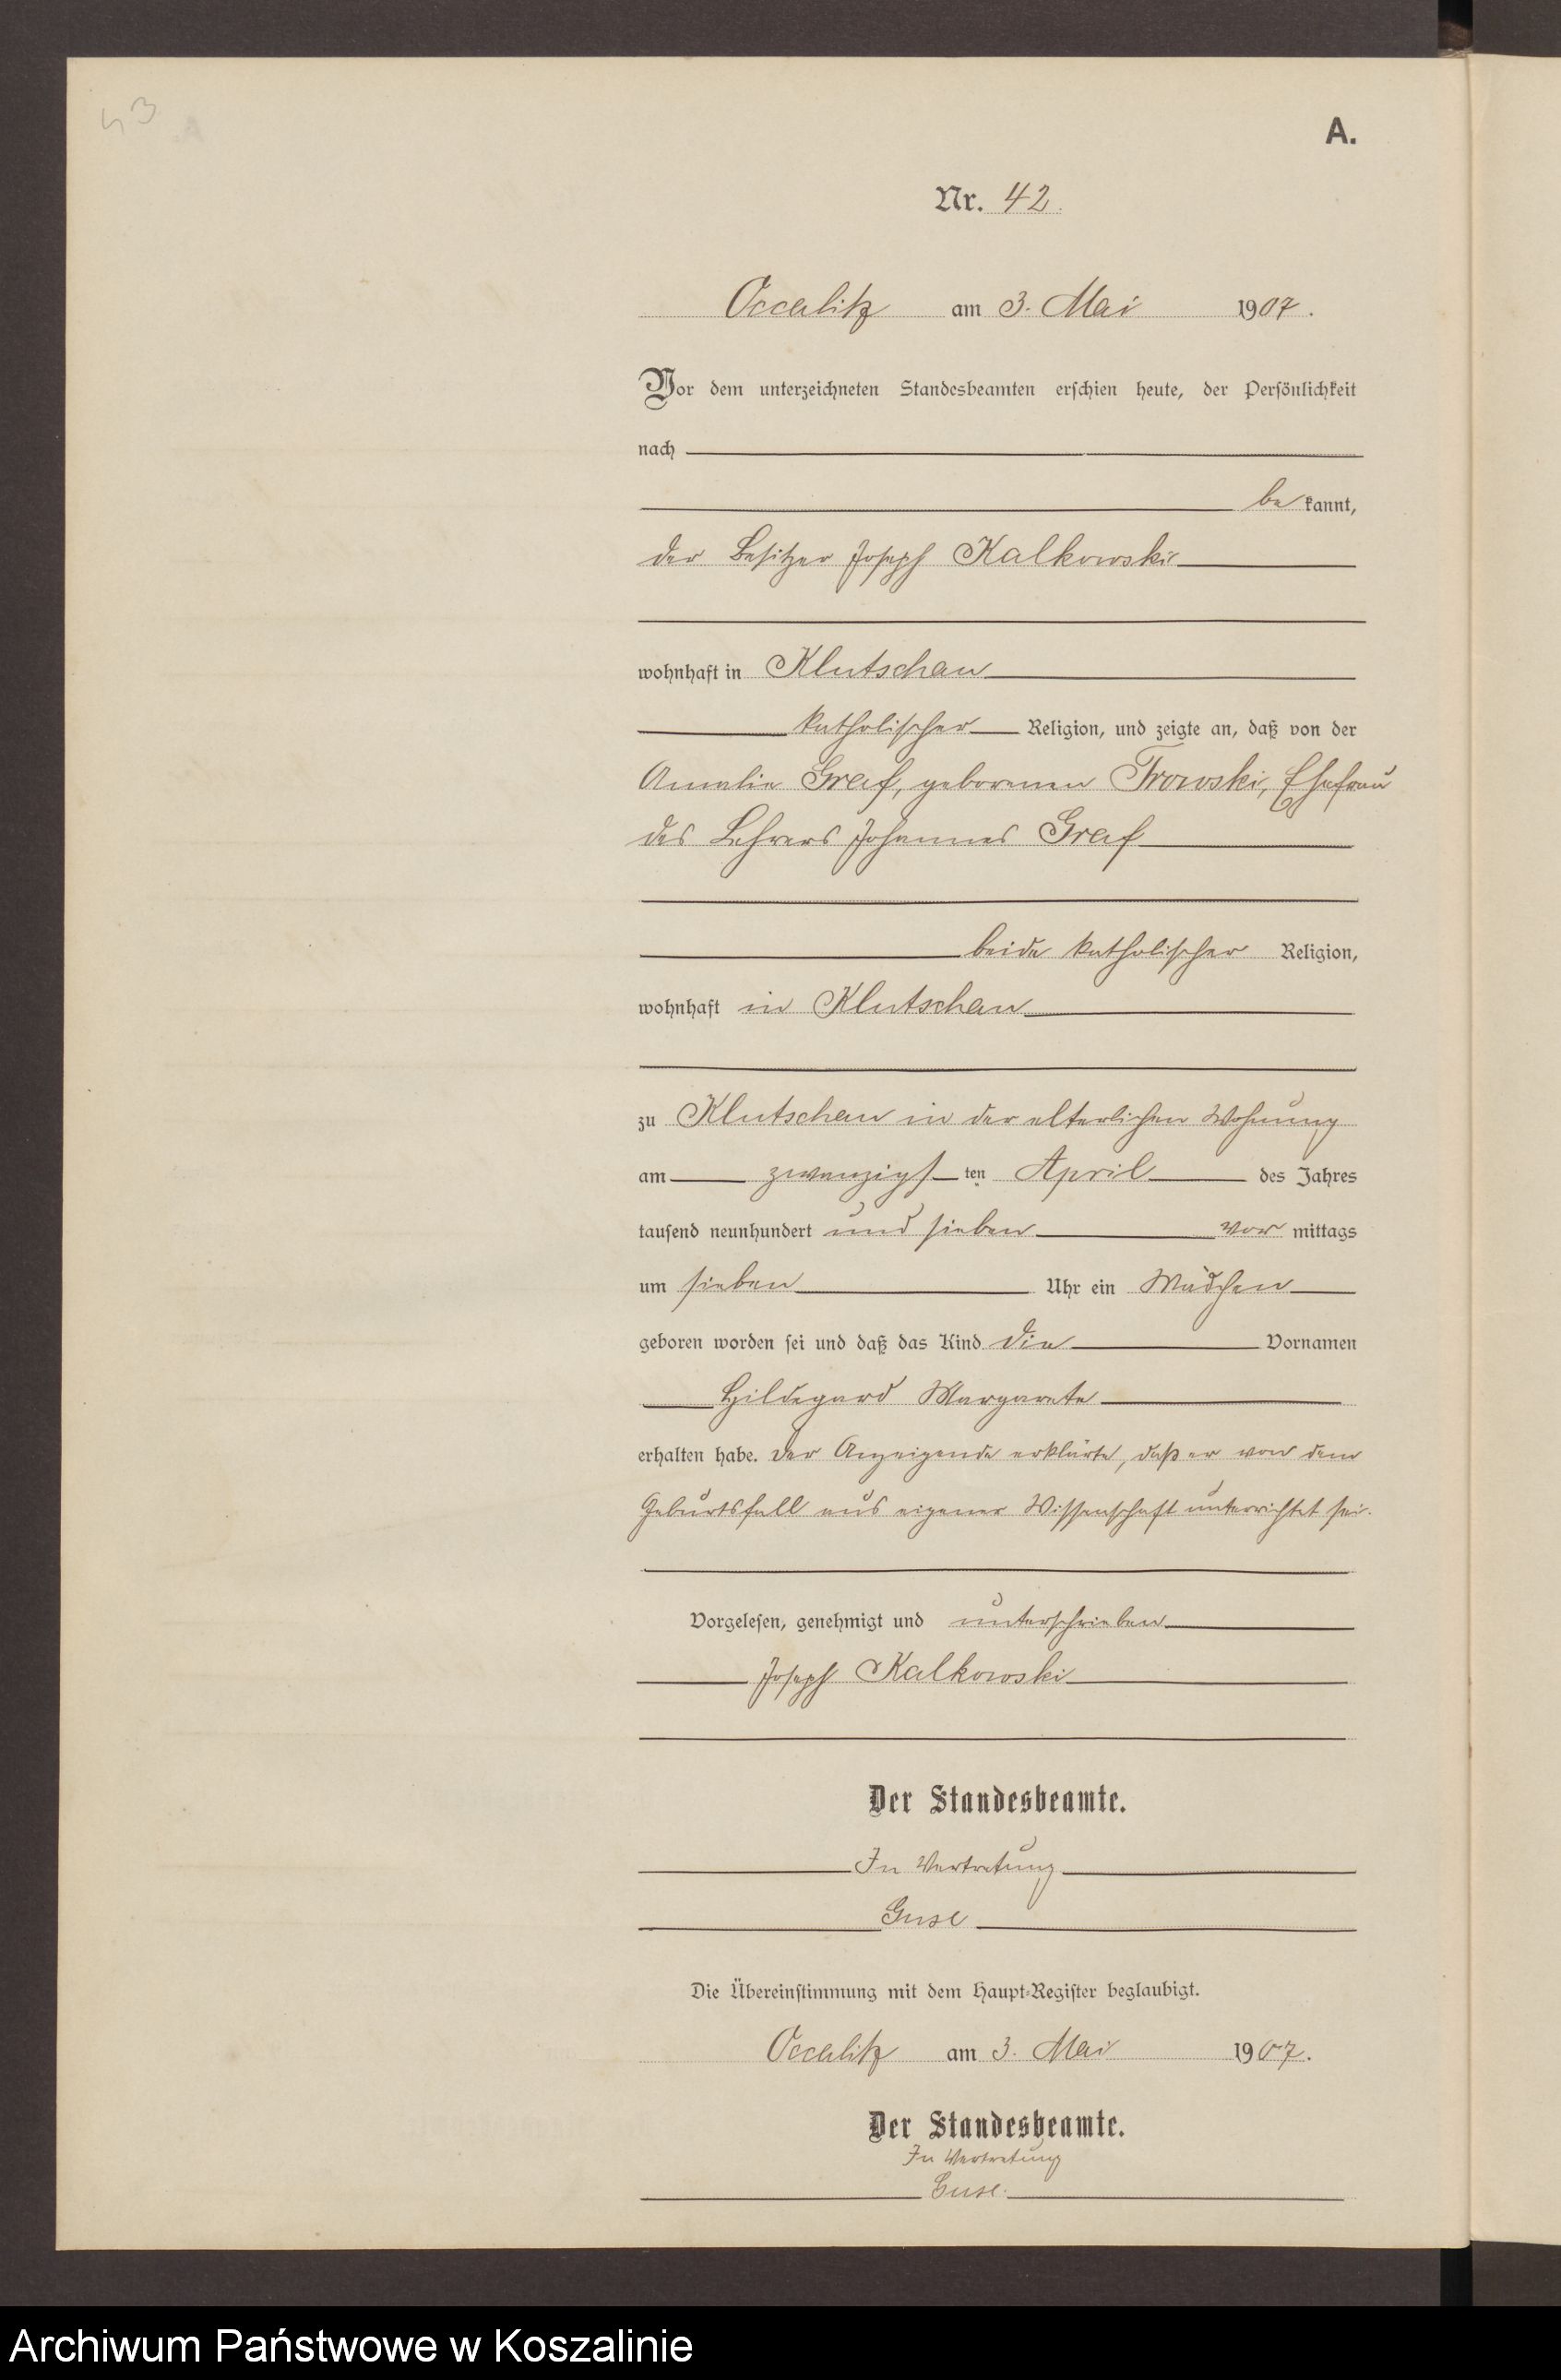 43
A.
Nr. 42.
Occalitz am 3. Mai 1907.
Vor dem unterzeichneten Standesbeamten erschien heute, der Persönlichkeit
nach
be kannt,
der Besitzer Joseph Kalkowski
wohnhaft in Klutschau
katholischer Religion, und zeigte an, daß von der
Amalie Graf, geborenen Trowski, Ehefrau
des Lehrers Johannes Graf
beide katholischer Religion,
wohnhaft in Klutschau
zu Klutschau in der elterlichen Wohnung
am zwanzigsten April des Jahres
tausend neunhundert und sieben vor mittags
um sieben Uhr ein Mädchen
geboren worden sei und daß das Kind die Vornamen
Hildegard Margarete
erhalten habe. Der Anzeigende erklärte, daß er von dem
Geburtsfall aus eigener Wissenschaft unterrichtet sei.
Vorgelesen, genehmigt und unterschrieben
Joseph Kalkowski
Der Standesbeamte.
In Vertretung
Guse
Die Übereinstimmung mit dem Haupt-Register beglaubigt.
Occalitz am 3. Mai 1907.
Der Standesbeamte.
In Vertretung
Guse.
Archiwum Państwowe w Koszalinie